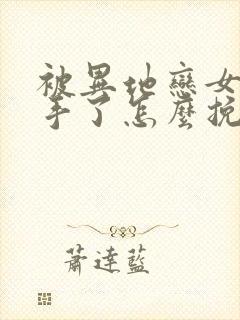 被異地戀女
手了怎麼挽
蕭達藍